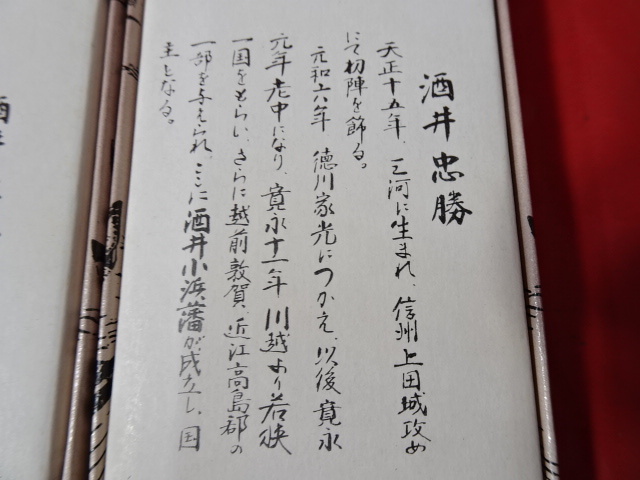 酒井忠勝
天正十五年、三河に生まれ、信州上田城攻め
にて初陣を飾る。
元和六年 徳川家光につかえ、以後寛永
元年老中になり、寛永十一年川越より若狭
一国をもらい、さらに越前敦賀、近江高島郡の
一部を与えられ、ここに酒井小浜藩が成立し、国
主となる。
酒井